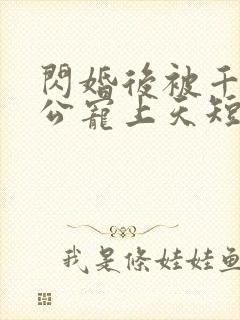 閃婚後被千
公寵上天短
我是條娃娃魚